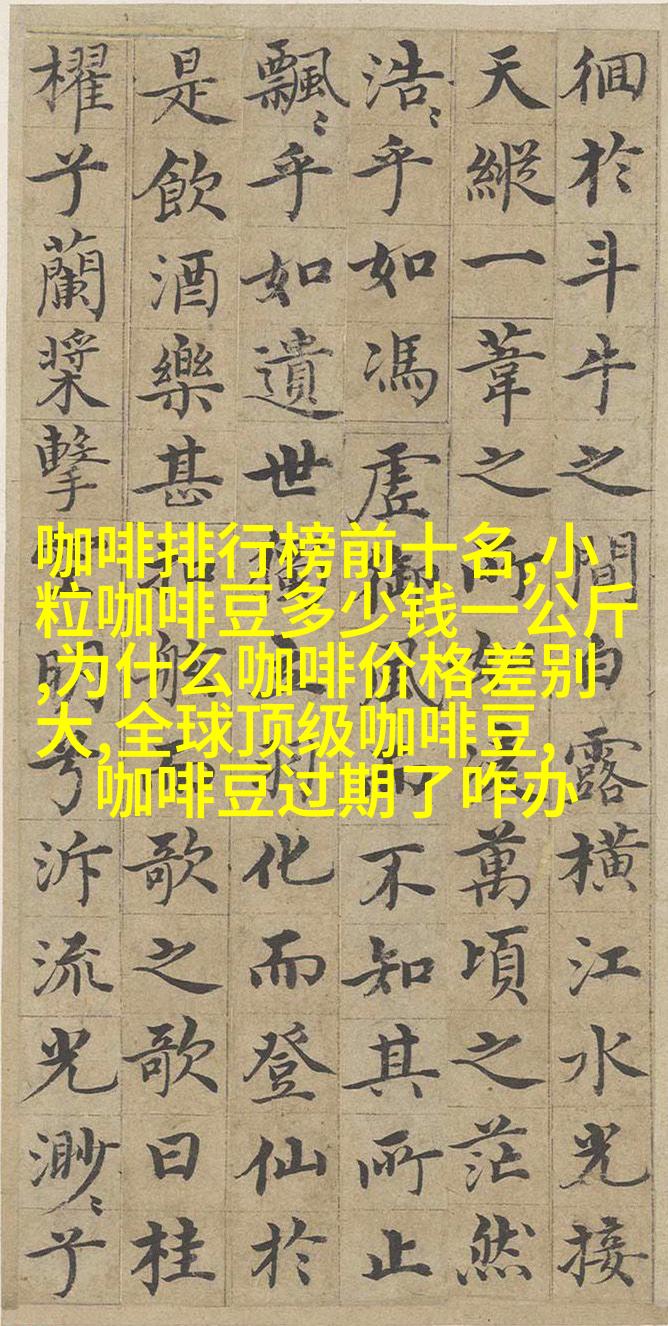 徊於斗牛之間白露橫江水光接
天縱一葦之所萬頃之茫然
浩〻乎如馮虛御風不知其所止
飄〻乎如遺世化而登仙於
是飲酒樂甚扣舷歌之歌曰桂
櫂兮蘭槳擊明兮泝流光渺〻兮
咖啡排行榜前十名,小
粒咖啡豆多少钱一公斤
,为什么咖啡价格差别
大,全球顶级咖啡豆,
咖啡豆过期了咋办